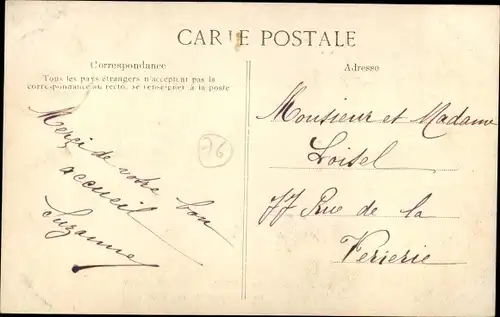 CARTE POSTALE
Correspondance
Tous les pays étrangers n'acceptent pas la
correspondance au recto, se renseigner à la poste
Merçi de votre bon
accueil
Suzanne
76
Adresse
Monsieur et Madame
Loisel
77 Rue de la
Verierie